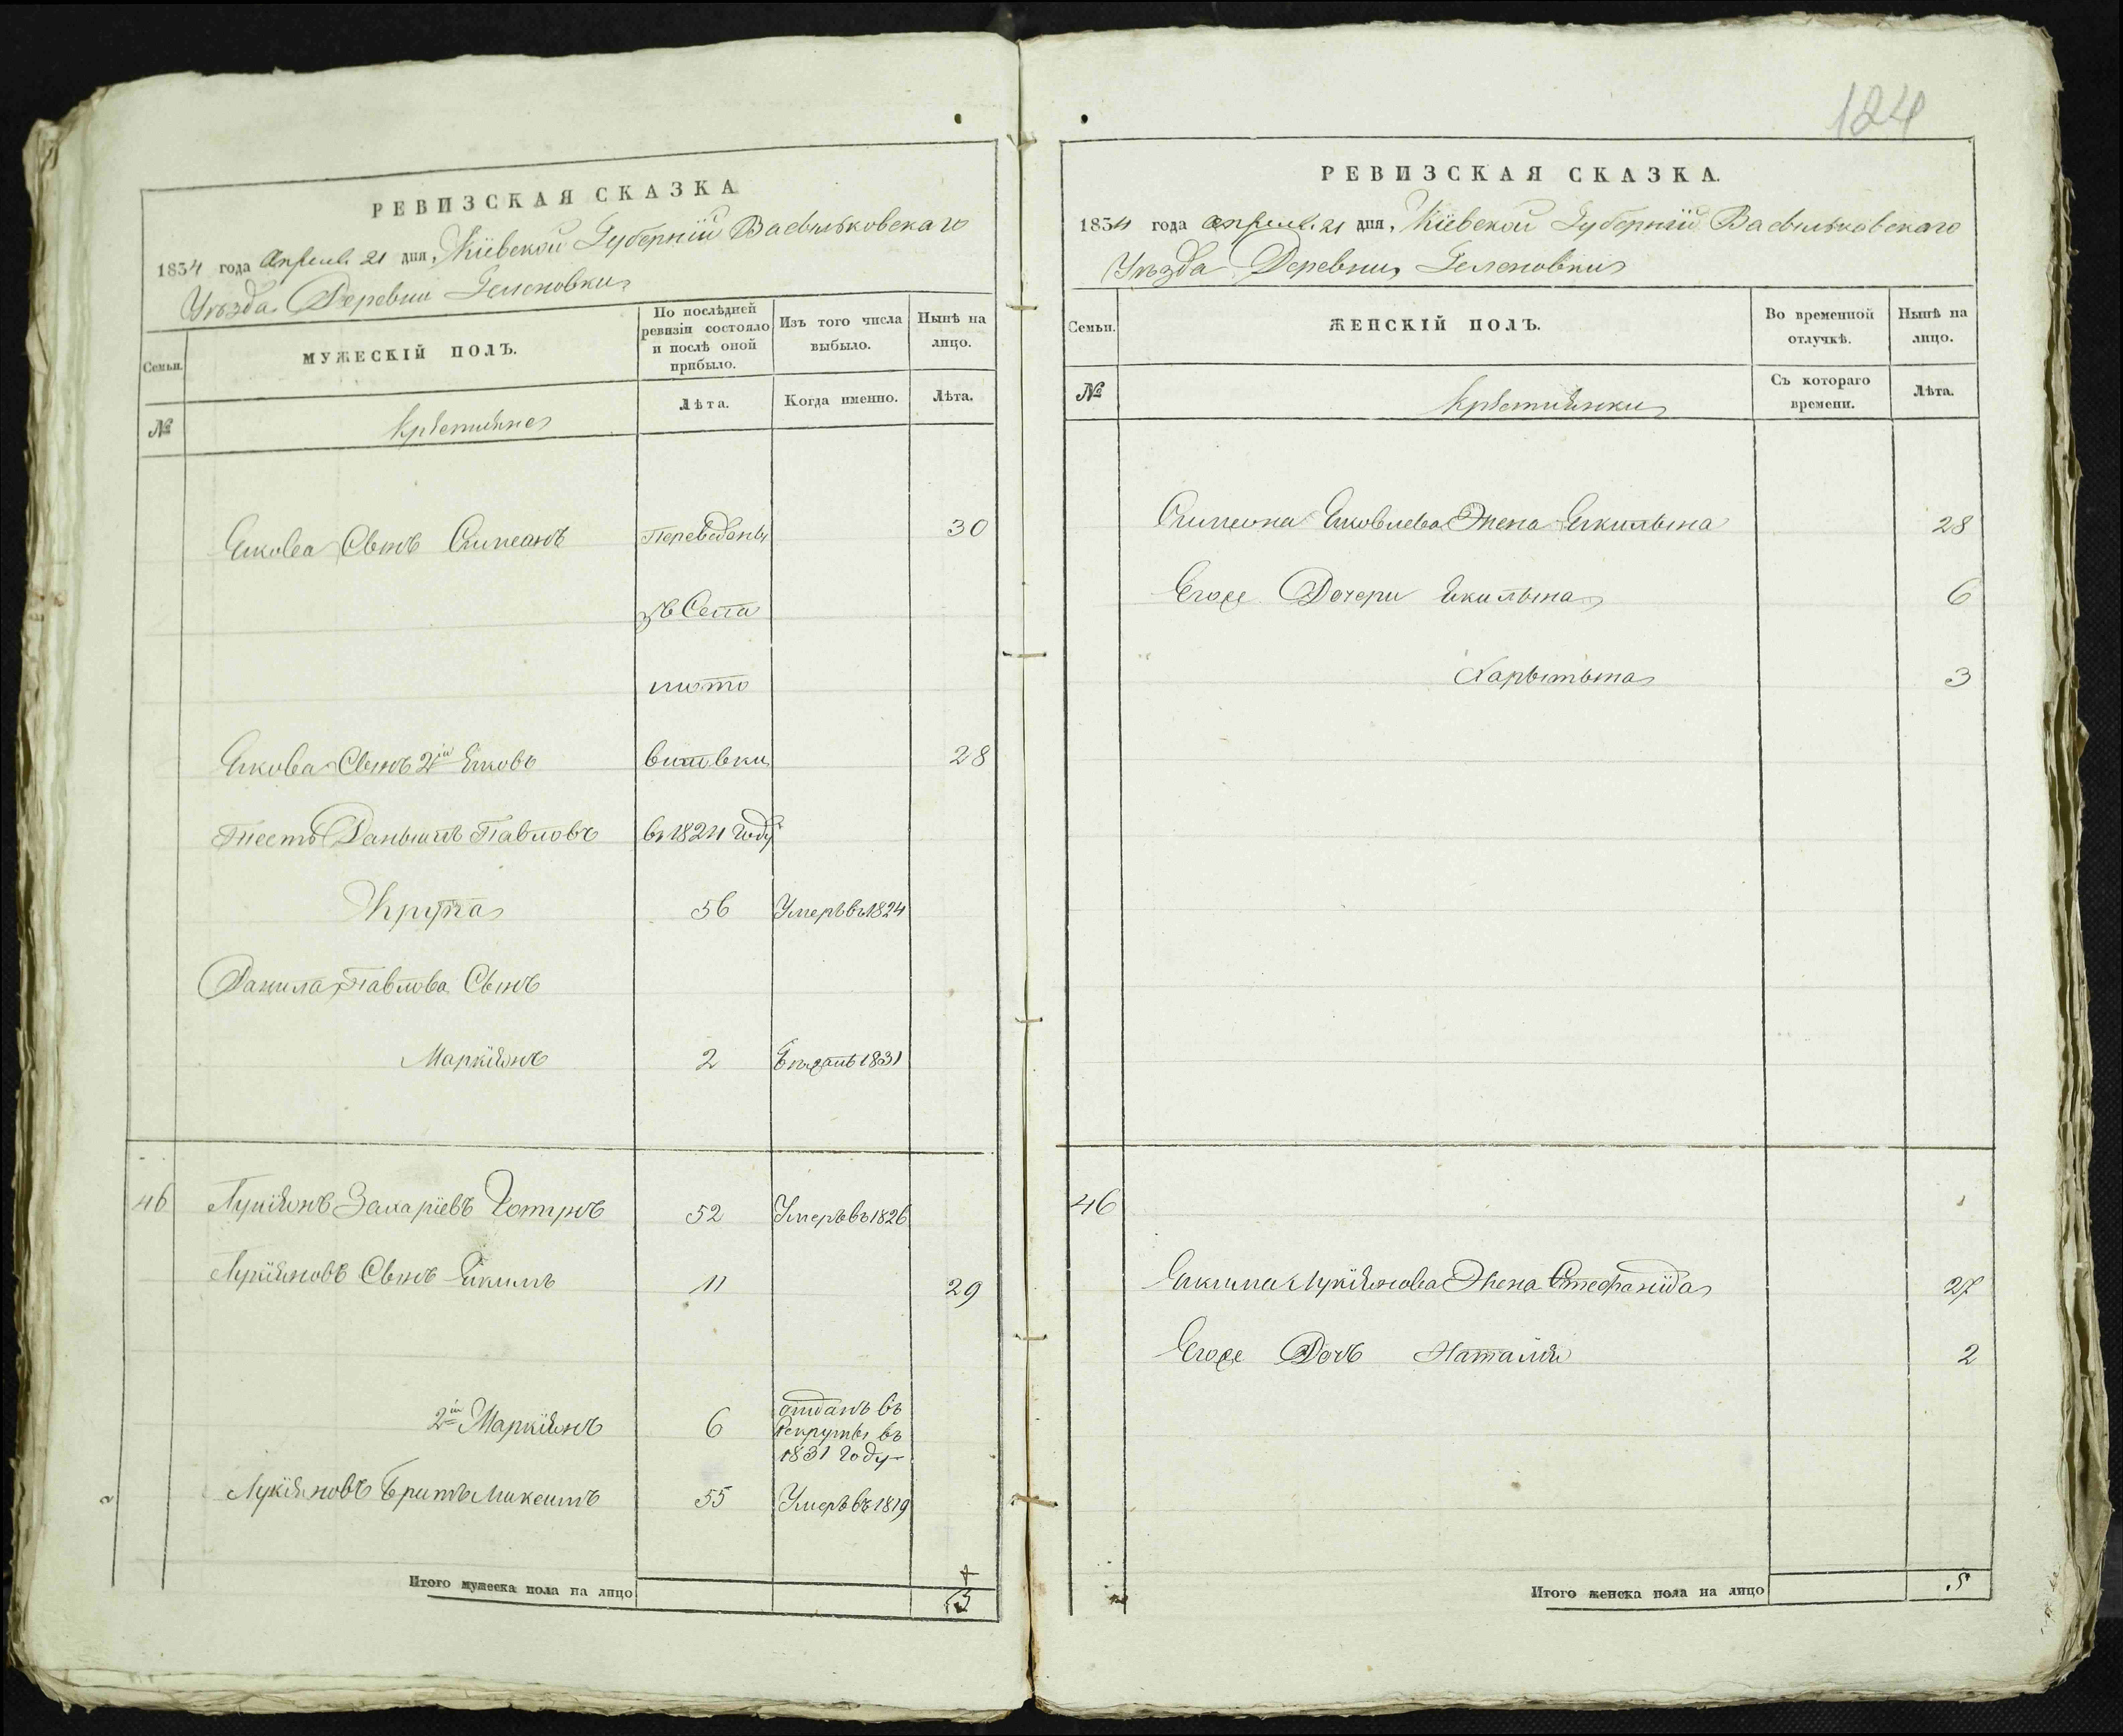 РЕВИЗСКАЯ СКАЗКА
1834 года Апреля 21 дня, Кіевской Губерніи Васильковскаго
Уѣзда Деревни
Семьи.
МУЖЕСКІЙ ПОЛЪ.
По послѣдней ревизіи состояло и послѣ оной прибыло.
Изъ того числа выбыло.
Нынѣ на лицо.
№
Крестьяне
Лѣта.
Когда именно.
Лѣта.
Якова Сынъ переведены 30
зъ Села
Якова Сынъ 2й Яковъ 28
Павловъ въ 1824 году
56 Умеръ въ 1824
Данила Павлова Сынъ
Маркіянъ 2 1831
46 Лукіянъ Захаріевъ 52 Умеръ въ 1826
Лукіяновъ Сынъ Екимъ 11 29
2й Маркіянъ 6 отданъ въ
Рекруты въ
1831 году
Лукіяновъ Братъ Максимъ 55 Умеръ въ 1819
Итого мужеска пола на лицо 3
124
РЕВИЗСКАЯ СКАЗКА.
1834 года Апреля 21 дня, Кіевской Губерніи Васильковскаго
Уѣзда Деревни
Семьи.
ЖЕНСКІЙ ПОЛЪ.
Во временной отлучкѣ.
Нынѣ на лицо.
№
Крестьянки
Съ котораго времени.
Лѣта.
Яковлева Жена Екилына 28
Егоже Дочери Екилына 6
Харытына 3
46
Екима Лукіянова Жена Стефанida 27
Егоже Дочь Наталія 2
Итого женска пола на лицо 5